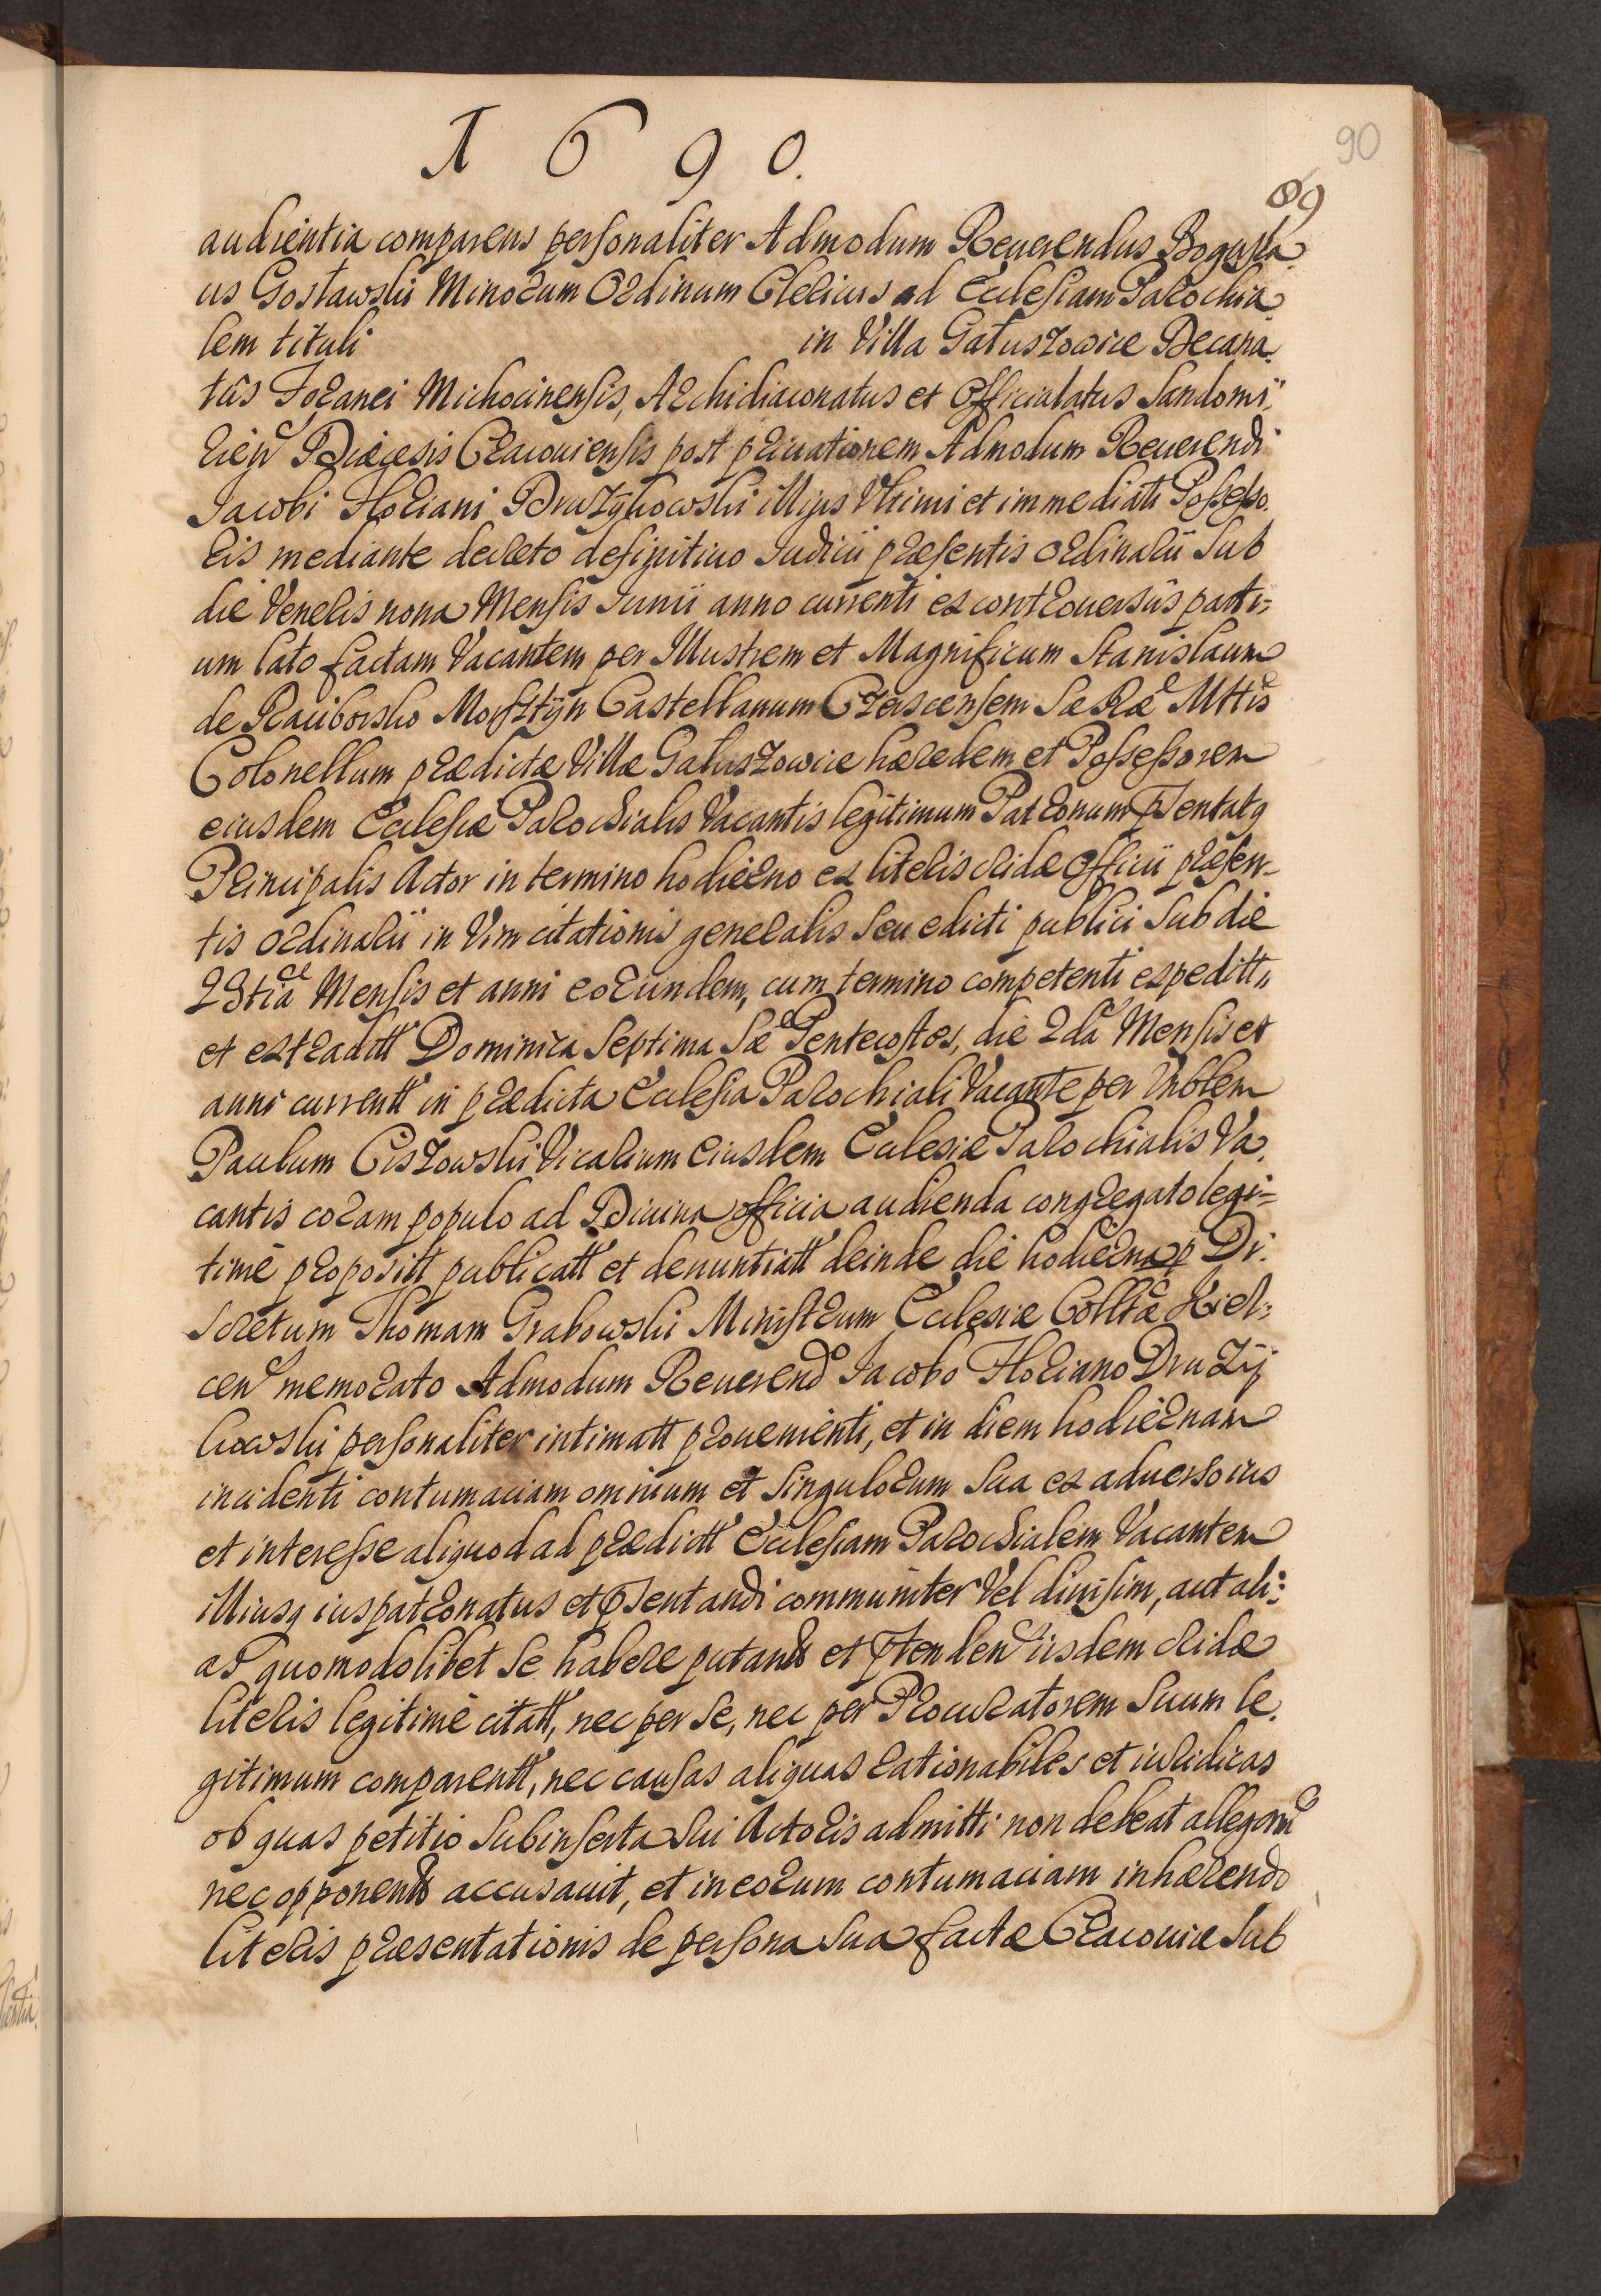 1690.
90
89
audientia comparens personaliter Admodum Reuerendus Bogusla
us Gostawski Minorum Ordinum Clericus ad Ecclesiam Parochia
lem tituli in Villa Gatuszowice Decana
tûs Foranei Michocinensis, Archidiaconatus et Officialatus Sandomi:
rien Diæcesis Cracouiensis post priuationem Admodum Reuerendi
Jacobi Floriani Druzykowski illius Vltimi et immediati Possesso
ris mediante decreto definitiuo Iudicii præsentis ordinarii sub
die Veneris nona Mensis Iunii anno currenti ex controuersiis parti=
um lato factam Vacantem per Illustrem et Magnificum Stanislaum
de Raciborsko Morsztÿn Castellanum Czerscensem Sæ Ræ Mttis
Colonellum prædictæ Villæ Gatuszowice hæredem et Possessorem
eiusdem Ecclesiæ Parochialis Vacantis legitimum Patronum pñtentatq
Principalis Actor in termino hodierno ex literis cridæ Officii præsen-
tis ordinarii in Vim citationis generalis seu edicti publici sub die
23tia Mensis et anni eorundem, cum termino competenti expeditt,
et extraditt Dominica Septima Sæ Pentecostes, die 2da Mensis et
anni currentt in prædicta Ecclesia Parochiali Vacante per Vnblem
Paulum Ciszowski Vicarium eiusdem Eclesiæ Parochialis Va,
cantis coram populo ad Diuina officia audienda congregato legi=
timè propositt publicatt et denuntiatt deinde die hodierna p Di:
scretum Thomam Grabowski Ministrum Ecclesiæ Colltæ Kiel:
cen memorato Admodum Reuerendo Jacobo Floriano Druzÿ
kowski personaliter intimatt prouenienti, et in diem hodiernam
incidenti contumaciam omnium et singulorum sua ex aduerso ius
et interesse aliquod ad prædictt Ecclesiam Parochialem Vacantem
illiusq ius patronatus et pñsentandi communiter Vel diuisim, aut ali:
as quomodolibet se habere putantt et ptenden iisdem cridæ
literis legitimè citatt, nec per se, nec per Procuratorem suum le,
gitimum comparentt, nec causas aliquas rationabiles et iuridicas
ob quas petitio subinserta sui Actoris admitti non debeat allegan
nec opponentt accusauit, et in eorum contumaciam inhærendo
literis præsentationis de persona sua factæ Cracouiæ sub